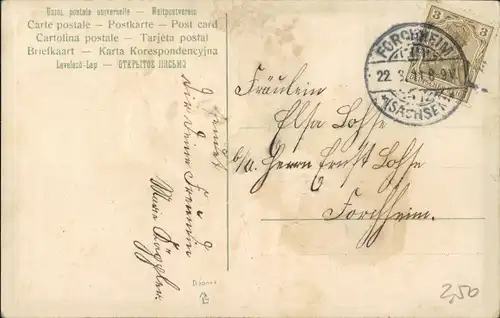 Union postale universelle – Weltpostverein
Carte postale – Postkarte – Post card
Cartolina postale – Tarjeta postal
Briefkaart – Karta Korespondencyjna
Levelező-Lap – ОТКРЫТОЕ ПИСЬМО
FORCHHEIM
8-9V.
(SACHSEN)
3 3
Fräulein
Elsa Lohse
b/a. Herrn Ernst Lohse
Forchheim.
sendet
dir deine Freundin
Marie
2,50